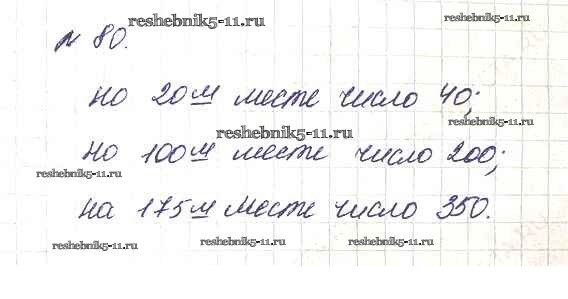 reshebnik5-11.ru
№ 80.
на 20м месте число 40;
reshebnik5-11.ru
на 100м месте число 200;
reshebnik5-11.ru reshebnik5-11.ru
на 175м месте число 350.
reshebnik5-11.ru reshebnik5-11.ru